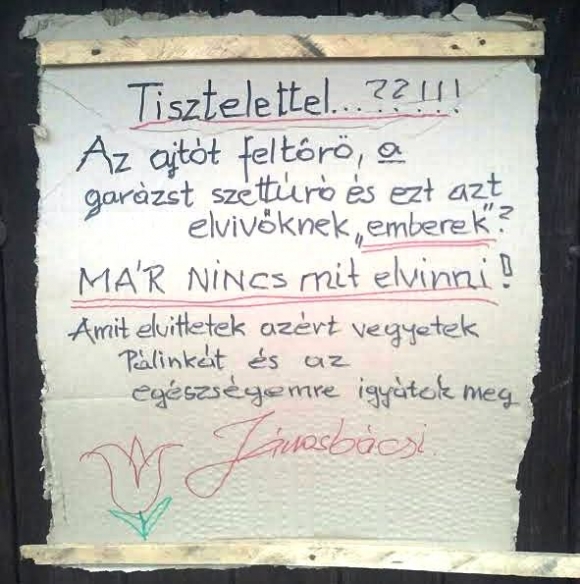 Tisztelettel...??!!!
Az ajtót feltörő, a
garázst széttúró és ezt azt
elvivőknek „emberek"?
MÁR NINCS mit elvinni!
Amit elvittetek azért vegyetek
Pálinkát és az
egészségemre igyátok meg
Jánosbácsi.